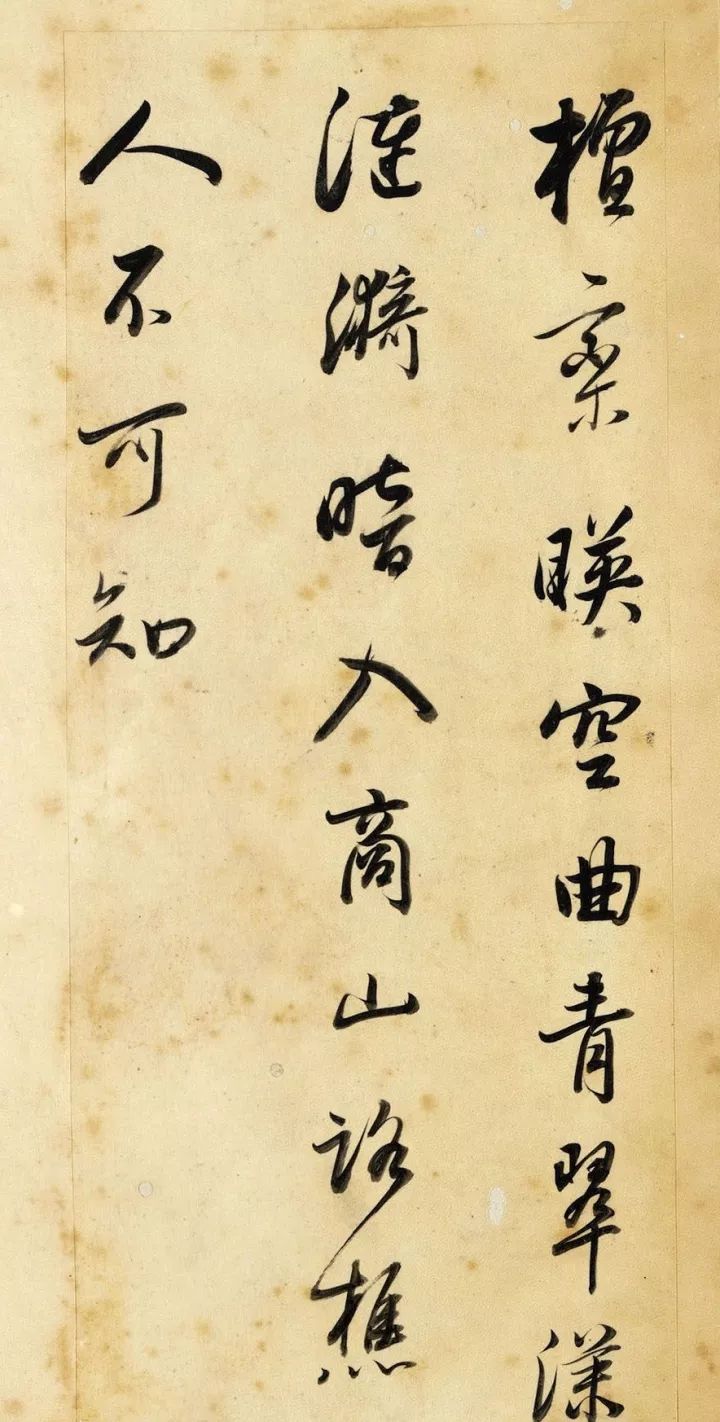 檀欒暎空曲青翠漾
漣漪暗入商山路樵
人不可知